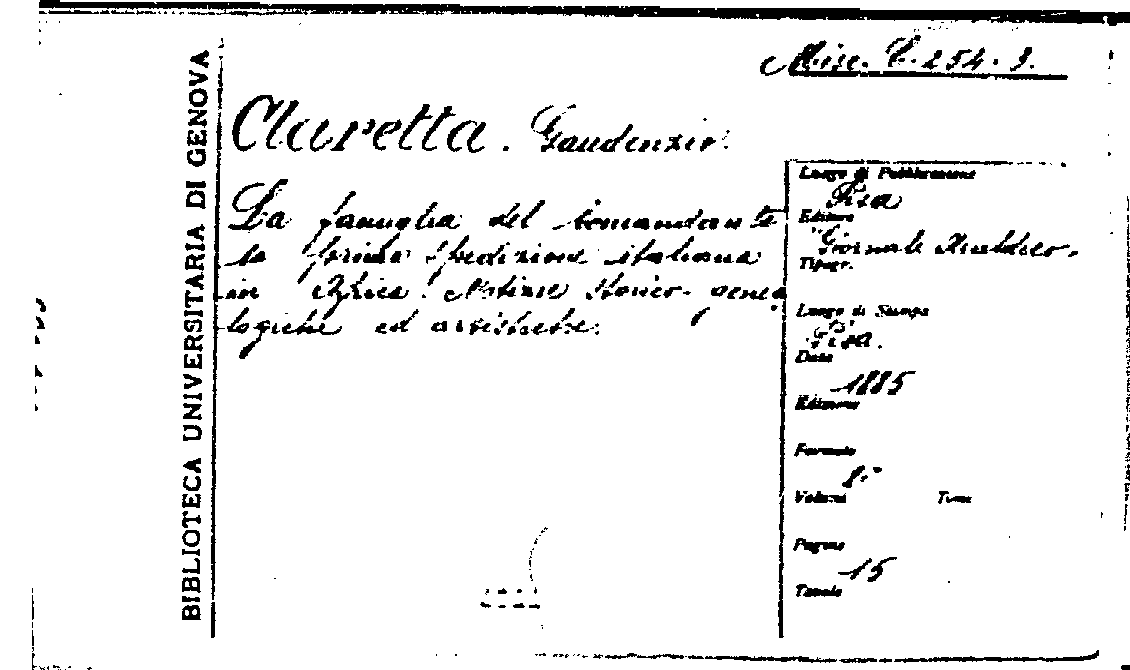 BIBLIOTECA UNIVERSITARIA DI GENOVA
Misc. C. 254. 9.
Claretta. Gaudenzio.
La famiglia del comandante
la prima spedizione italiana
in Africa. Notizie storico-genea
logiche ed artistiche.
Luogo di Pubblicazione
Pisa
Editore
Giornale Araldico.
Tipogr.
Luogo di Stampa
Pisa.
Data
1885
Edizione
Formato
8°
Volumi Tomi
Pagine
15
Tavole